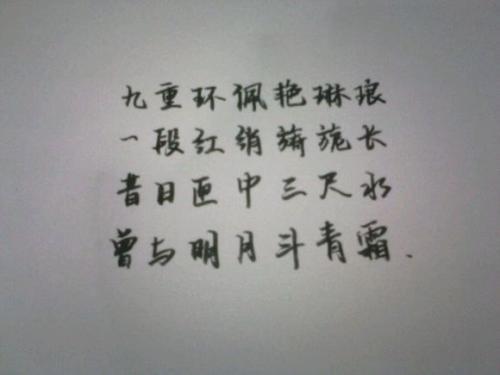 九重环佩艳琳琅
一段红绡旖旎长
昔日匣中三尺水
曾与明月斗青霜.